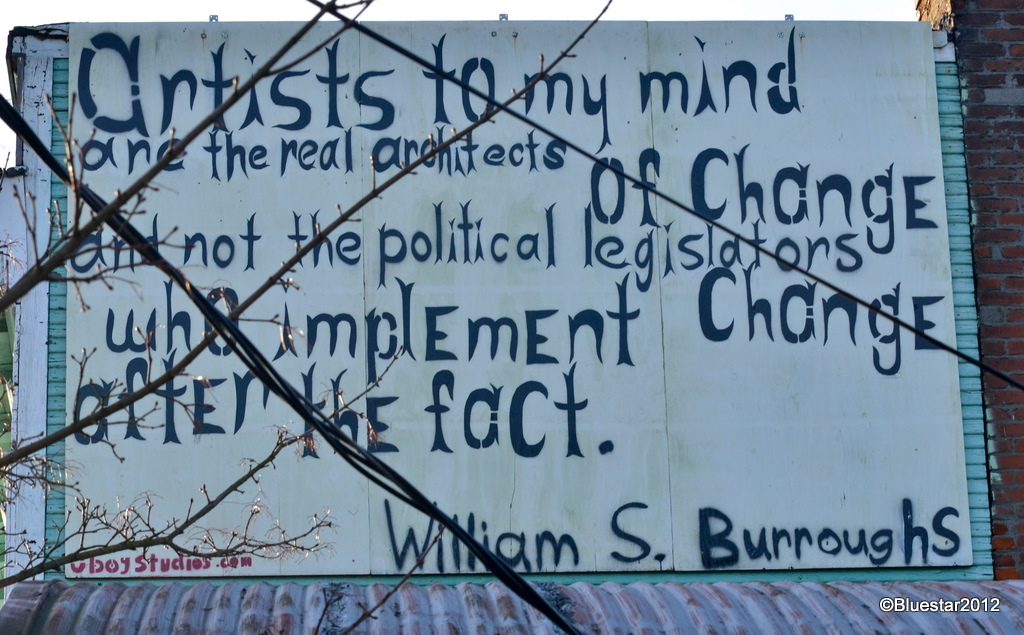 Artists to my mind
are the real architects of Change
and not the political legislators
who implement Change
after the fact.
William S. Burroughs
uboyStudios.com
©Bluestar2012